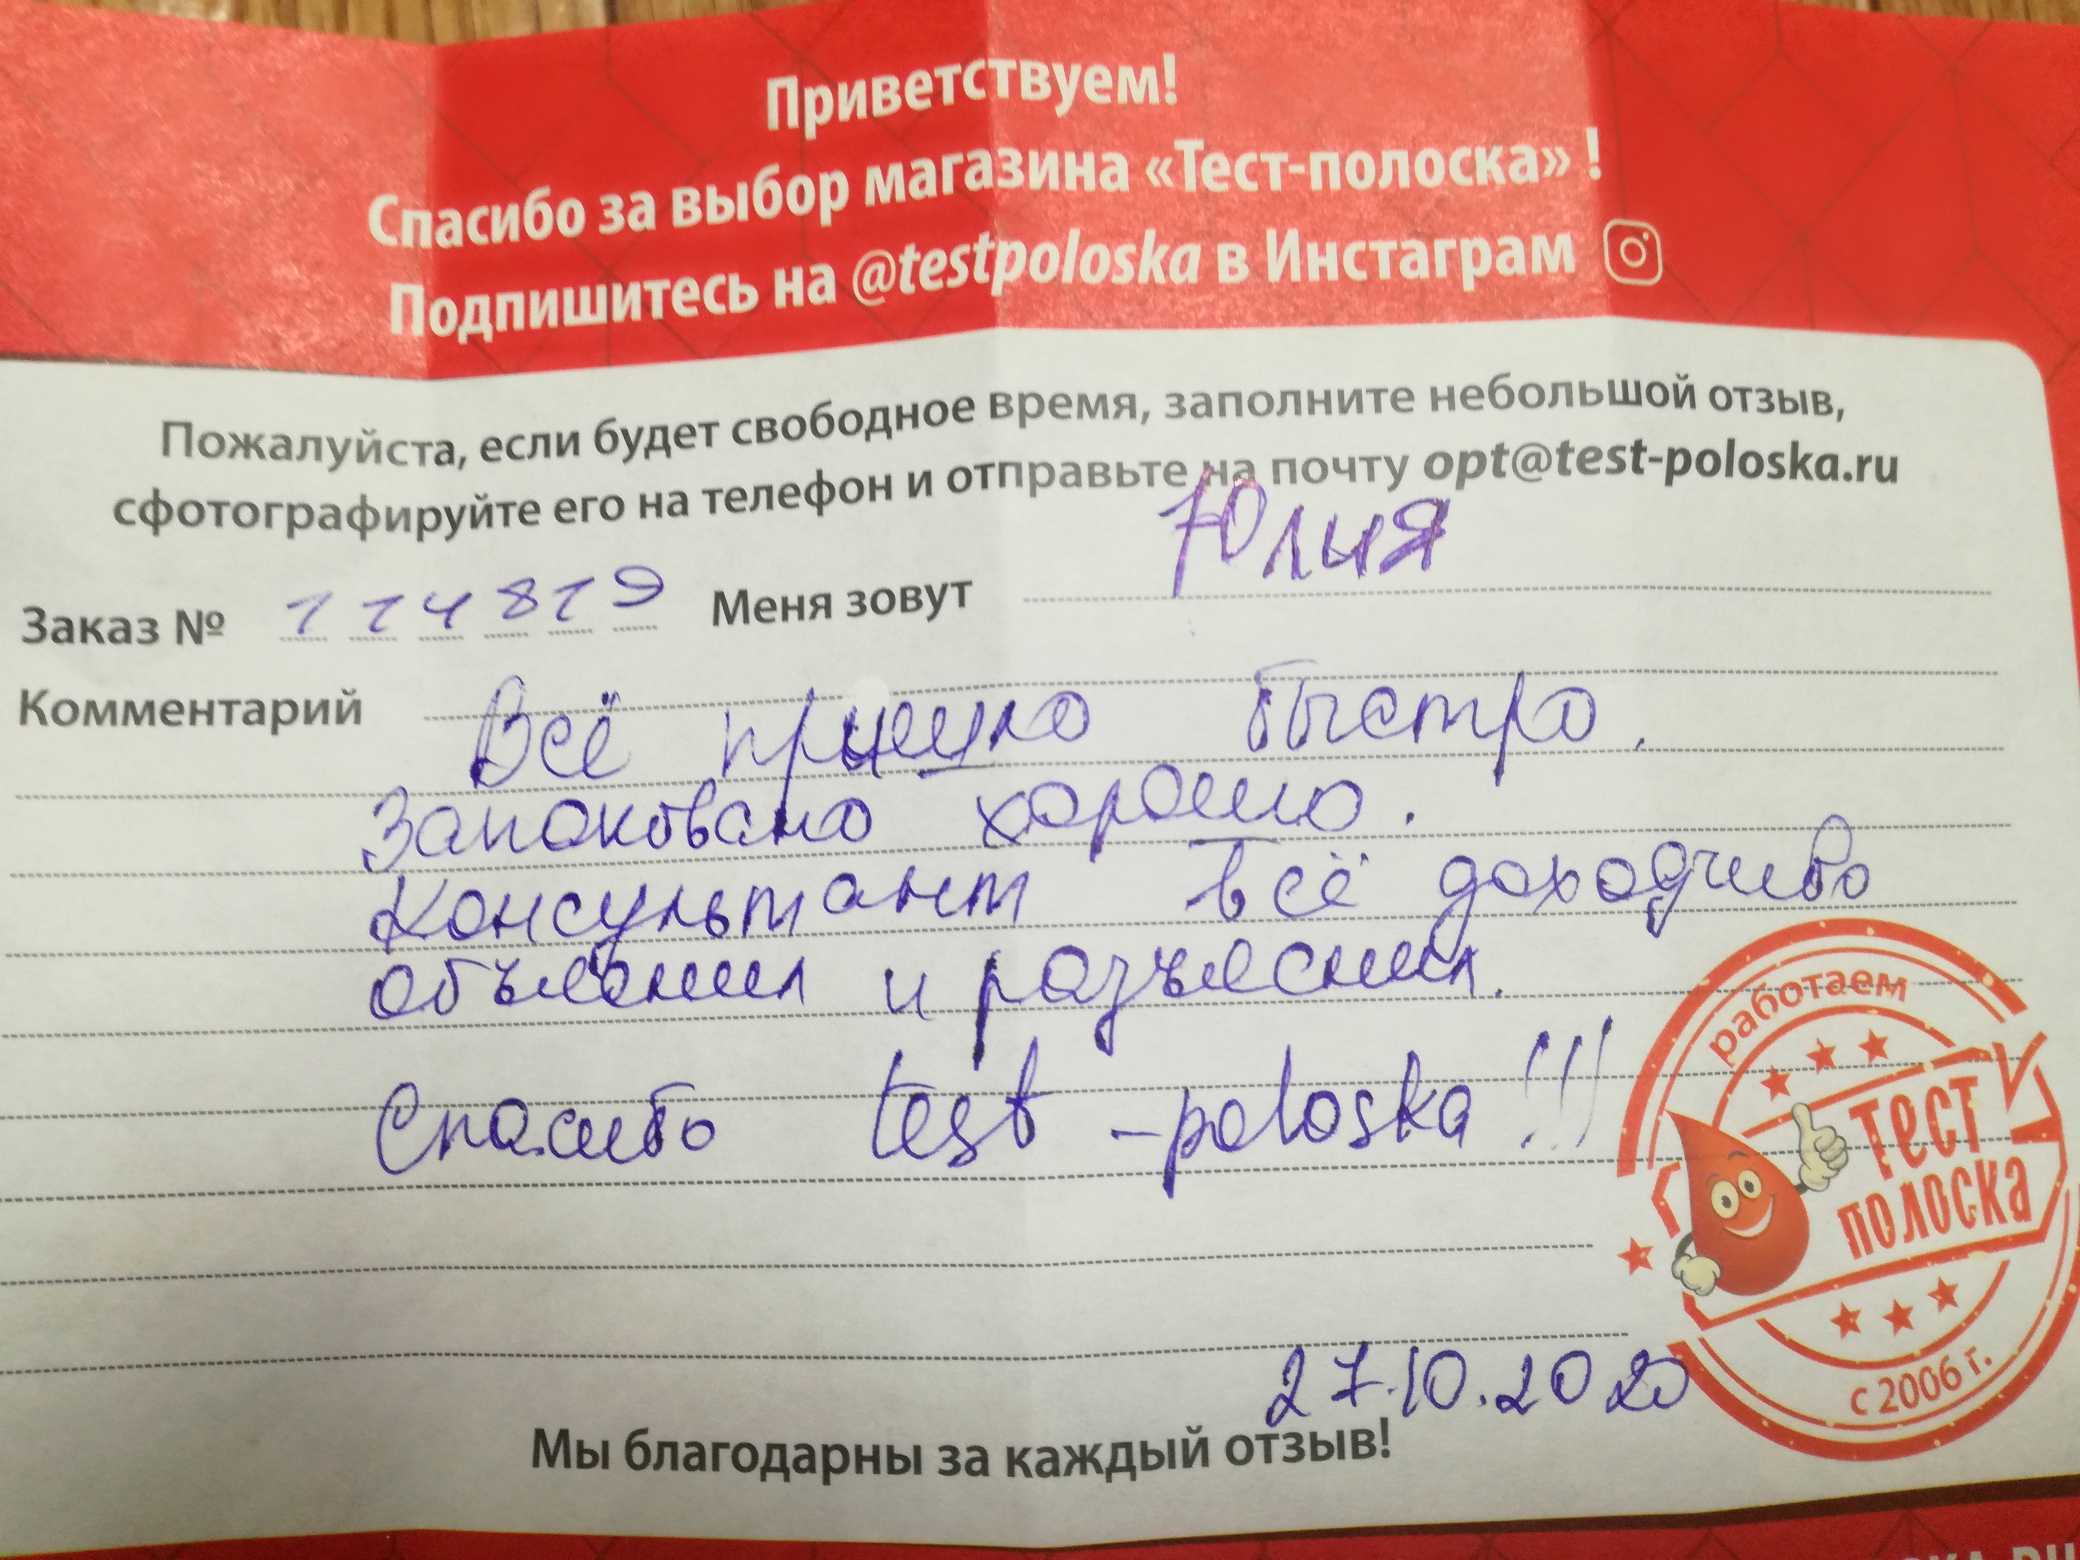 Приветствуем!
Спасибо за выбор магазина «Тест-полоска» !
Подпишитесь на @testpoloska в Инстаграм
Пожалуйста, если будет свободное время, заполните небольшой отзыв,
сфотографируйте его на телефон и отправьте на почту opt@test-poloska.ru
Заказ № 114819 Меня зовут Юлия
Комментарий Всё пришло быстро.
Запаковано хорошо.
Консультант всё доходчиво
объяснил и разъяснил.
Спасибо test-poloska!!!
работаем
ТЕСТ
ПОЛОСКА
с 2006 г.
27.10.2020
Мы благодарны за каждый отзыв!